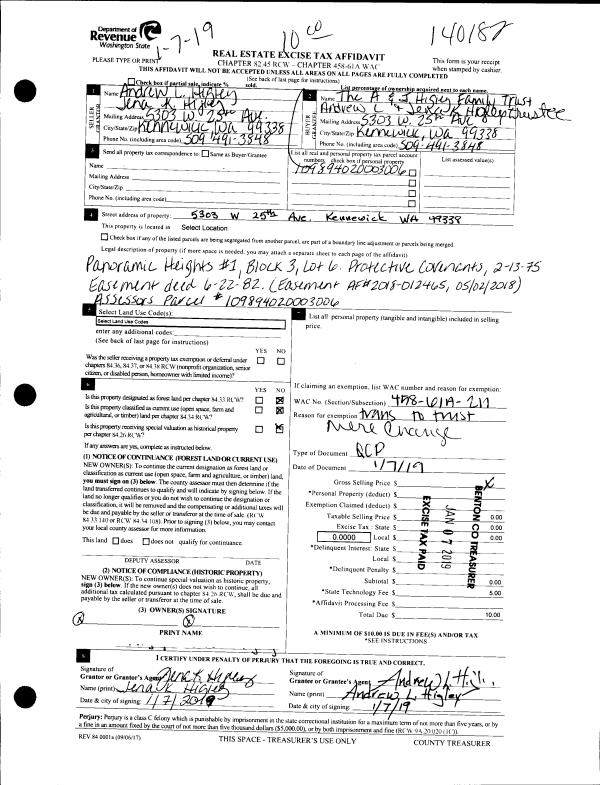 Department of
Revenue
Washington State
1-7-19
10 00
140187
PLEASE TYPE OR PRINT
REAL ESTATE EXCISE TAX AFFIDAVIT
CHAPTER 82.45 RCW – CHAPTER 458-61A WAC
This form is your receipt
when stamped by cashier.
THIS AFFIDAVIT WILL NOT BE ACCEPTED UNLESS ALL AREAS ON ALL PAGES ARE FULLY COMPLETED
(See back of last page for instructions)
Check box if partial sale, indicate % sold.
List percentage of ownership acquired next to each name.
1
SELLER GRANTOR
Name Andrew L. Higley
Jena K. Higley
Mailing Address 5303 W. 25th Ave.
City/State/Zip Kennewick, WA 99338
Phone No. (including area code) 509-491-3848
2
BUYER GRANTEE
Name The A & J Higley Family Trust
Andrew L & Jena K Higley trustee
Mailing Address 5303 W. 25th Ave
City/State/Zip Kennewick, WA 99338
Phone No. (including area code) 509-491-3848
3 Send all property tax correspondence to: Same as Buyer/Grantee
Name
Mailing Address
City/State/Zip
Phone No. (including area code)
List all real and personal property tax parcel account
numbers – check box if personal property
109894020003006
List assessed value(s)
4 Street address of property: 5303 W 25th Ave, Kennewick WA 99338
This property is located in Select Location
Check box if any of the listed parcels are being segregated from another parcel, are part of a boundary line adjustment or parcels being merged.
Legal description of property (if more space is needed, you may attach a separate sheet to each page of the affidavit)
Panoramic Heights #1, Block 3, Lot 6. Protective Covenants, 2-13-75
Easement deed 6-22-82. (Easement AF#2018-012465, 05/02/2018)
Assessors Parcel # 109894020003006
5 Select Land Use Code(s):
Select Land Use Codes
enter any additional codes:
(See back of last page for instructions)
YES NO
Was the seller receiving a property tax exemption or deferral under
chapters 84.36, 84.37, or 84.38 RCW (nonprofit organization, senior
citizen, or disabled person, homeowner with limited income)?
6
YES NO
Is this property designated as forest land per chapter 84.33 RCW?
Is this property classified as current use (open space, farm and
agricultural, or timber) land per chapter 84.34 RCW?
Is this property receiving special valuation as historical property
per chapter 84.26 RCW?
If any answers are yes, complete as instructed below.
(1) NOTICE OF CONTINUANCE (FOREST LAND OR CURRENT USE)
NEW OWNER(S): To continue the current designation as forest land or
classification as current use (open space, farm and agriculture, or timber) land,
you must sign on (3) below. The county assessor must then determine if the
land transferred continues to qualify and will indicate by signing below. If the
land no longer qualifies or you do not wish to continue the designation or
classification, it will be removed and the compensating or additional taxes will
be due and payable by the seller or transferor at the time of sale. (RCW
84.33.140 or RCW 84.34.108). Prior to signing (3) below, you may contact
your local county assessor for more information.
This land does does not qualify for continuance.
DEPUTY ASSESSOR DATE
(2) NOTICE OF COMPLIANCE (HISTORIC PROPERTY)
NEW OWNER(S): To continue special valuation as historic property,
sign (3) below. If the new owner(s) does not wish to continue, all
additional tax calculated pursuant to chapter 84.26 RCW, shall be due and
payable by the seller or transferor at the time of sale.
(3) OWNER(S) SIGNATURE
PRINT NAME
7 List all personal property (tangible and intangible) included in selling
price.
If claiming an exemption, list WAC number and reason for exemption:
WAC No. (Section/Subsection) 458-61A-211
Reason for exemption trans to trust
mere change
Type of Document QCD
Date of Document 1/7/19
Gross Selling Price $
*Personal Property (deduct) $
Exemption Claimed (deduct) $
Taxable Selling Price $ 0.00
Excise Tax : State $ 0.00
0.0000 Local $ 0.00
*Delinquent Interest: State $
Local $
*Delinquent Penalty $
Subtotal $ 0.00
*State Technology Fee $ 5.00
*Affidavit Processing Fee $
Total Due $ 10.00
EXCISE TAX PAID
JAN 07 2019
BENTON CO TREASURER
A MINIMUM OF $10.00 IS DUE IN FEE(S) AND/OR TAX
*SEE INSTRUCTIONS
8 I CERTIFY UNDER PENALTY OF PERJURY THAT THE FOREGOING IS TRUE AND CORRECT.
Signature of
Grantor or Grantor's Agent Jena K Higley
Name (print) Jena K Higley
Date & city of signing: 1/7/2019
Signature of
Grantee or Grantee's Agent Andrew L. Higley
Name (print) Andrew L. Higley
Date & city of signing: 1/7/19
Perjury: Perjury is a class C felony which is punishable by imprisonment in the state correctional institution for a maximum term of not more than five years, or by
a fine in an amount fixed by the court of not more than five thousand dollars ($5,000.00), or by both imprisonment and fine (RCW 9A.20.020 (1C)).
REV 84 0001a (09/06/17)
THIS SPACE - TREASURER'S USE ONLY
COUNTY TREASURER